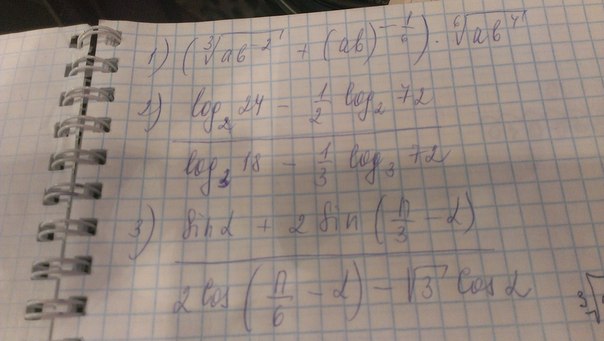 1) (∛(ab⁻²) + (ab)^(-1/6)) · ⁶√(ab⁴)
2) (log₂ 24 - 1/2 log₂ 72) / (log₃ 18 - 1/3 log₃ 72)
3) (sin α + 2 sin (π/3 - α)) / (2 cos (π/6 - α) - √3 cos α)